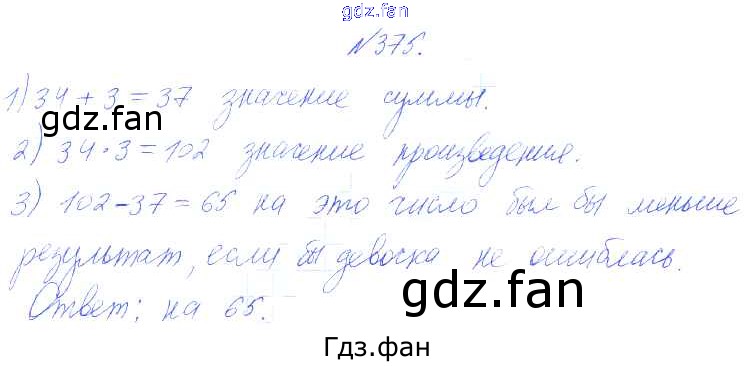 gdz.fan
№375.
1) 34 + 3 = 37 значение суммы.
gdz.fan
2) 34 · 3 = 102 значение произведения.
3) 102 - 37 = 65 на это число был бы меньше
результат, если бы девочка не ошиблась.
Ответ: на 65.
gdz.fan
Гдз.фан